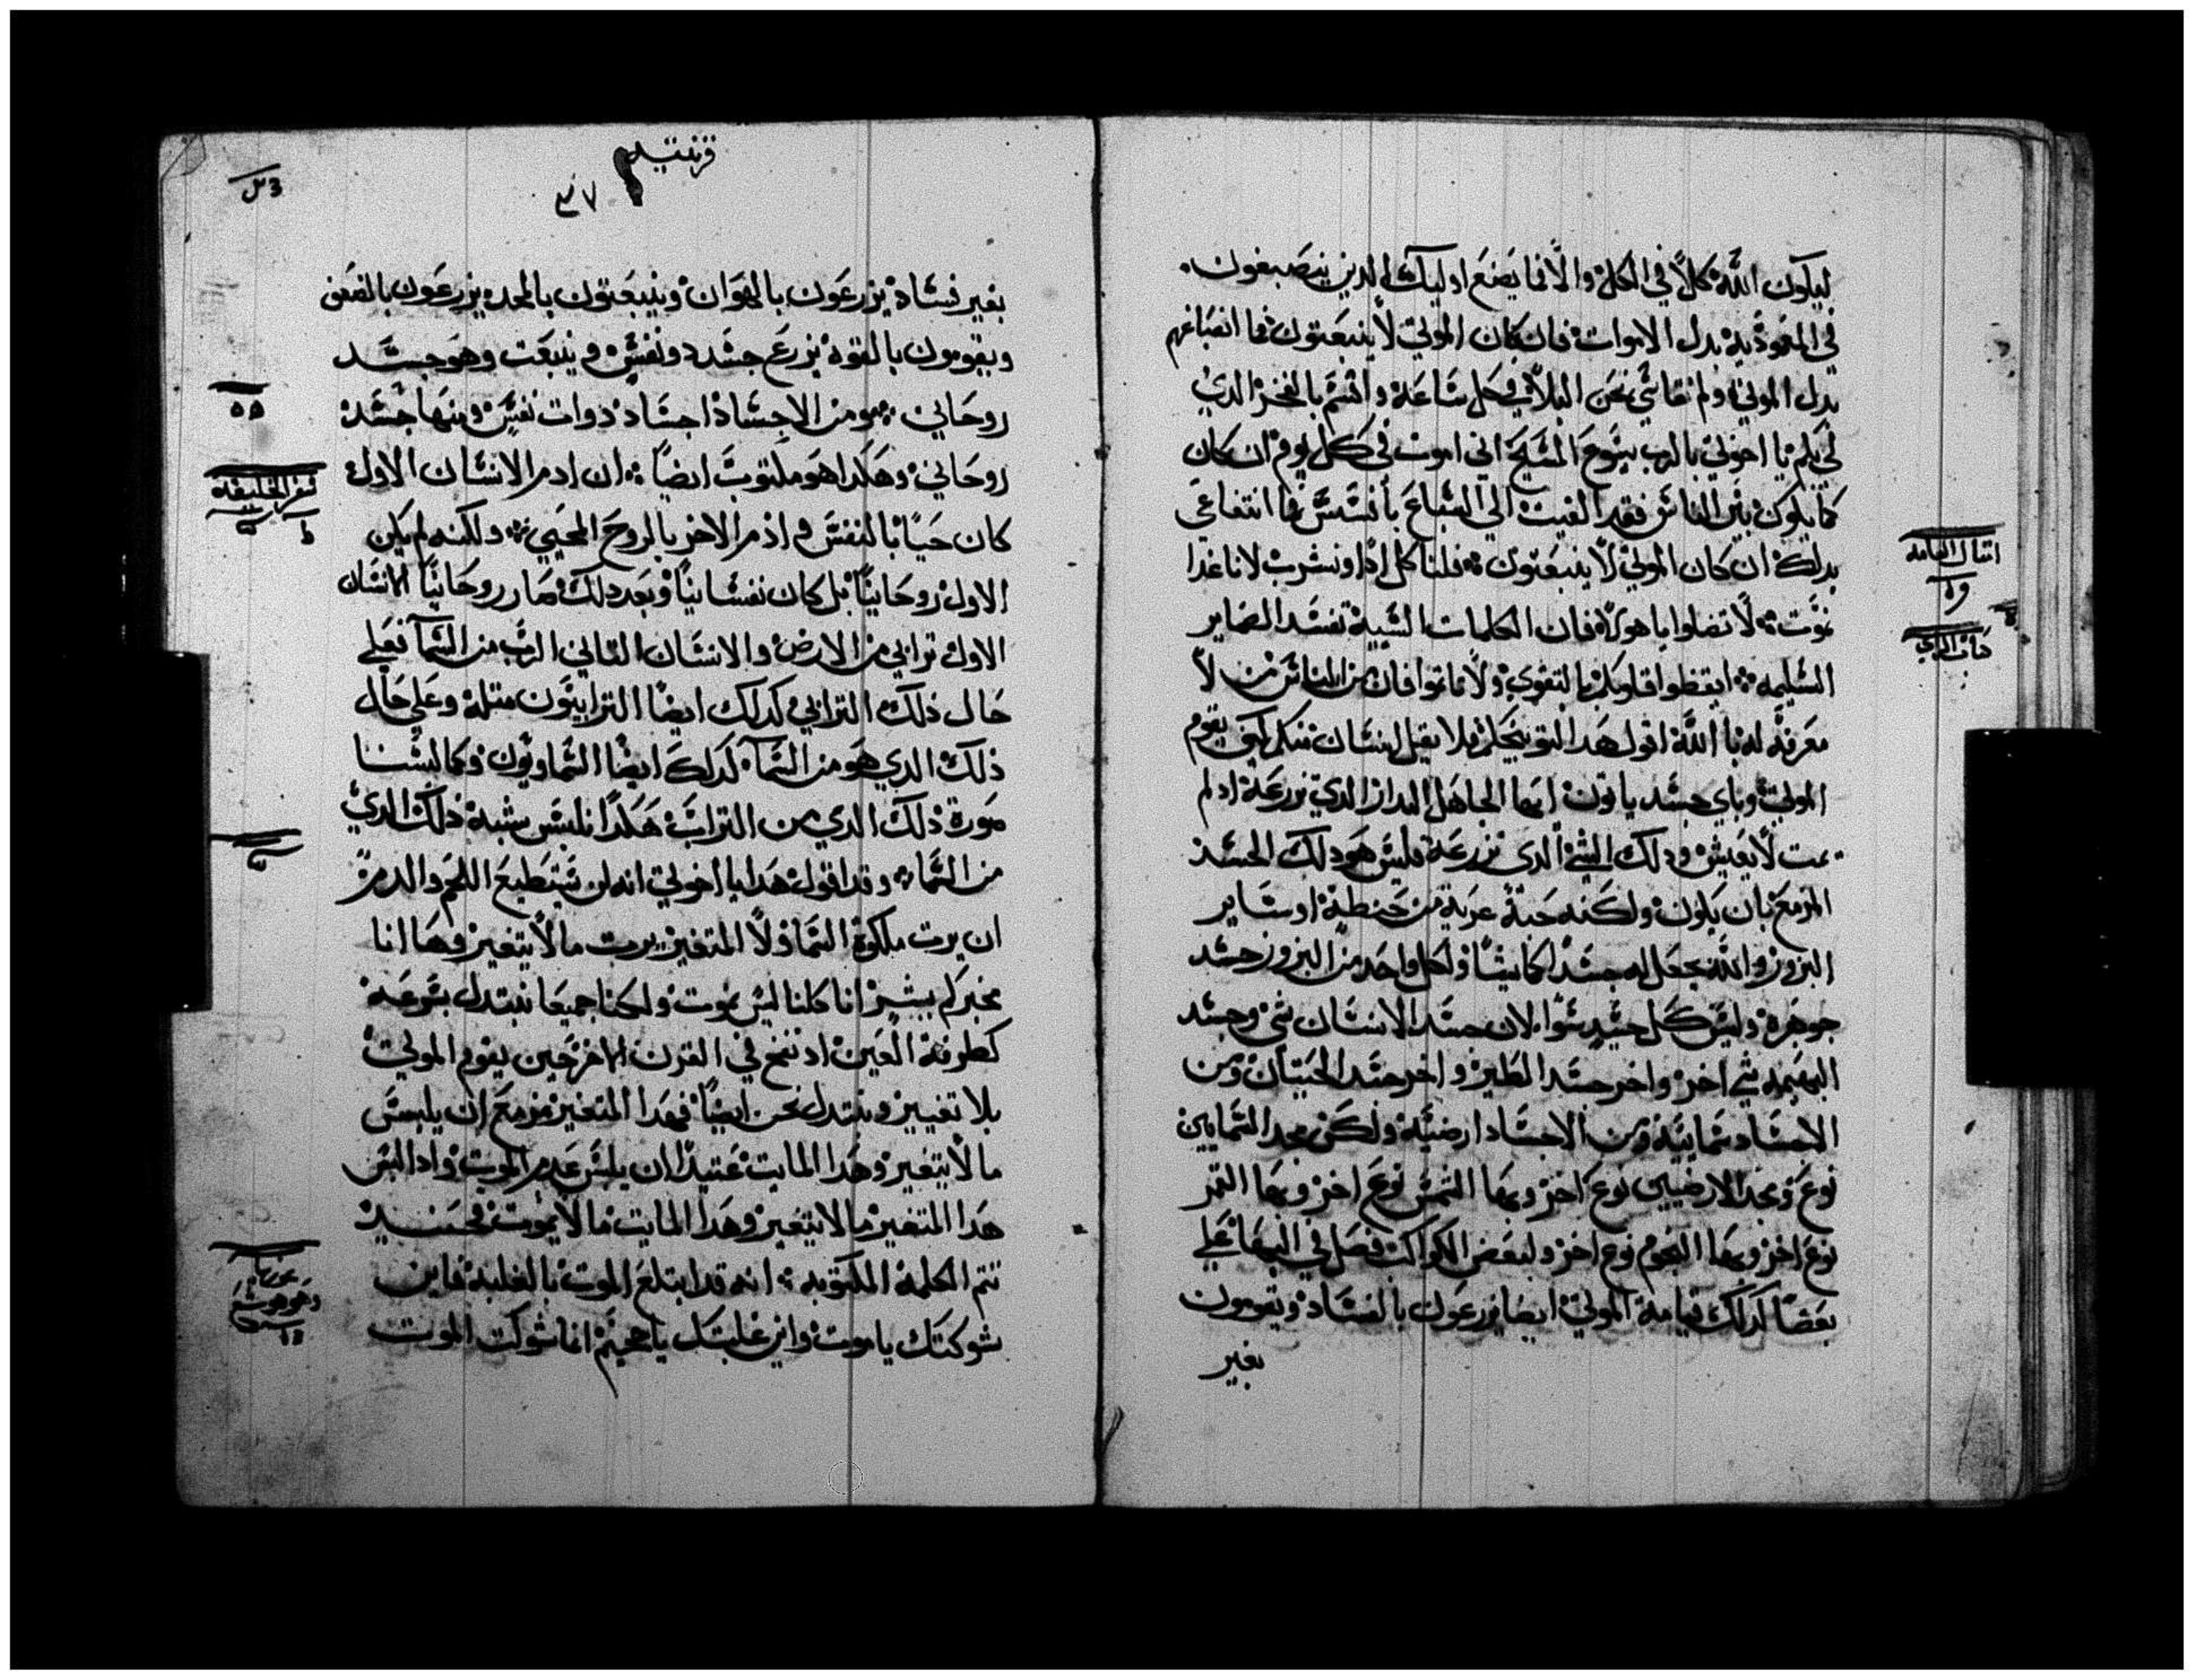 ليكون الله كلاً في الكل والا فما يصنع اوليك الدين ينصبغون
في المعموديه بدل الاموات فان كان الموتي لا ينبعتون فما انصباغهم
بدل الموتي ولم نقاسي نحن البلاء في كل ساعه واقسم بالفخر الدي
لي بكم يا اخوتي بالرب يسوع المسيح اني اموت في كل يوم ان كان
كما يكون بين الناس فقد القيت الي السباع بأفسس فما انتفاعي
بدلك ان كان الموتي لا ينبعتون فلناكل ادا ونشرب لاننا غدا
نموت لا تضلوا يا هولاء فان الكلمات السيه تفسد الضماير
السليمه ايقظوا قلوبكم بالتقوي ولا تاتموا فان من الناس من لا
معرفه له بالله اقول هدا لتوبيخكم فلا يقل انسان منكر كيف يقوم
الموتي وباي جسد ياتون ايها الجاهل البدار الدي تزرعه ادا لم
يمت لا يعيش ودلك الشي الدي تزرعه فليس هو دلك الجسد
المزمع بان يكون ولكنه حبة عريه من حنطة او ساير
البزور والله يجعل له جسداً كما يشا ولكل واحد من البزور جسد
جوهره وليس كل جسد سوا لان جسد الانسان شي وجسد
البهيمه شي اخر واخر جسد الطير واخر جسد الحيتان ومن
الاجساد سمائيه ومن الاجساد ارضيه ولكن مجد السمايين
نوع ومجد الارضيين نوع اخر وبها الشمس نوع اخر وبها القمر
نوع اخر وبها النجوم نوع اخر ولبعض الكواكب فضل في البها علي
بعضاً كدلك قيامة الموتي ايضا يزرعون بالفساد ويقومون
بغير
امتال العامه
قرنتيه
بغير فساد يزرعون بالهوان وينبعتون بالمجد يزرعون بالضعف
ويقومون بالقوه يزرع جسد دو نفس وينبعت وهو جسد
روحاني ومن الاجساد اجساد دوات نفس ومنها جسد
روحاني وهكدا هو مكتوب ايضاً ان ادم الانسان الاول
كان حياً بالنفس وادم الاخر بالروح المحيي ولكنه لم يكن
الاول روحانياً بل كان نفسانياً وبعد دلك صار روحانياً الانسان
الاول ترابي من الارض والانسان التاني الرب من السماء فعلي
حال دلك الترابي كدلك ايضا الترابيون متله وعلي حال
ذلك الدي هو من السماء كدلك ايضا السماويون وكما لبسنا
صورة ذلك الدي من التراب هكدا نلبس شبه ذلك الدي
من السما وقد اقول هدا يا اخوتي انه لن يستطيع اللحم والدم
ان يرت ملكوة السما ولا المتغير يرت ما لا يتغير وها انا
مخبركم بسر انا كلنا ليس نموت ولكنا جميعا نبتدل بسرعه
كطرفة العين اد ننفخ في القرن الاخر حين يقوم الموتي
بلا تغيير ونبتدل نحن ايضاً فهدا المتغير مزمع ان يلبس
ما لا يتغير وهدا المايت عتيداً ان يلبس عدم الموت وادا لبس
هدا المتغير ما لا يتغير وهدا المايت ما لا يموت فحينيد
تتم الكلمة المكتوبه انه قد ابتلع الموت بالغلبة فاين
شوكتك يا موت واين غلبتك يا جحيم انما شوكت الموت
سفر الخليقه